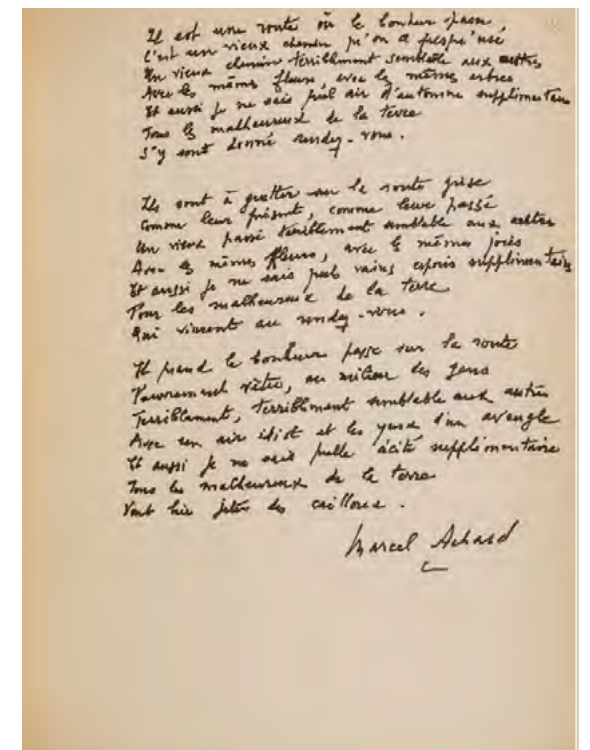 Il est une route où le bonheur passe,
C'est un vieux chemin qu'on a presqu'usé
Un vieux chemin terriblement semblable aux autres
Avec les mêmes fleurs, avec les mêmes arbres
Et aussi je ne sais quel air d'automne supplémentaire
Tous les malheureux de la terre
S'y sont donné rendez-vous.
Ils sont à guetter sur la route grise
Comme leur présent, comme leur passé
Un vieux passé terriblement semblable aux autres
Avec les mêmes fleurs, avec les mêmes joies
Et aussi je ne sais quels vains espoirs supplémentaires
Pour les malheureux de la terre
Qui vinrent au rendez-vous.
Et quand le bonheur passe sur la route
Pauvrement vêtu, au milieu des gens
Terriblement, terriblement semblable aux autres
Avec un air idiot et les yeux d'un aveugle
Et aussi je ne sais quelle cécité supplémentaire
Tous les malheureux de la terre
Vont lui jeter des cailloux.
Marcel Achard